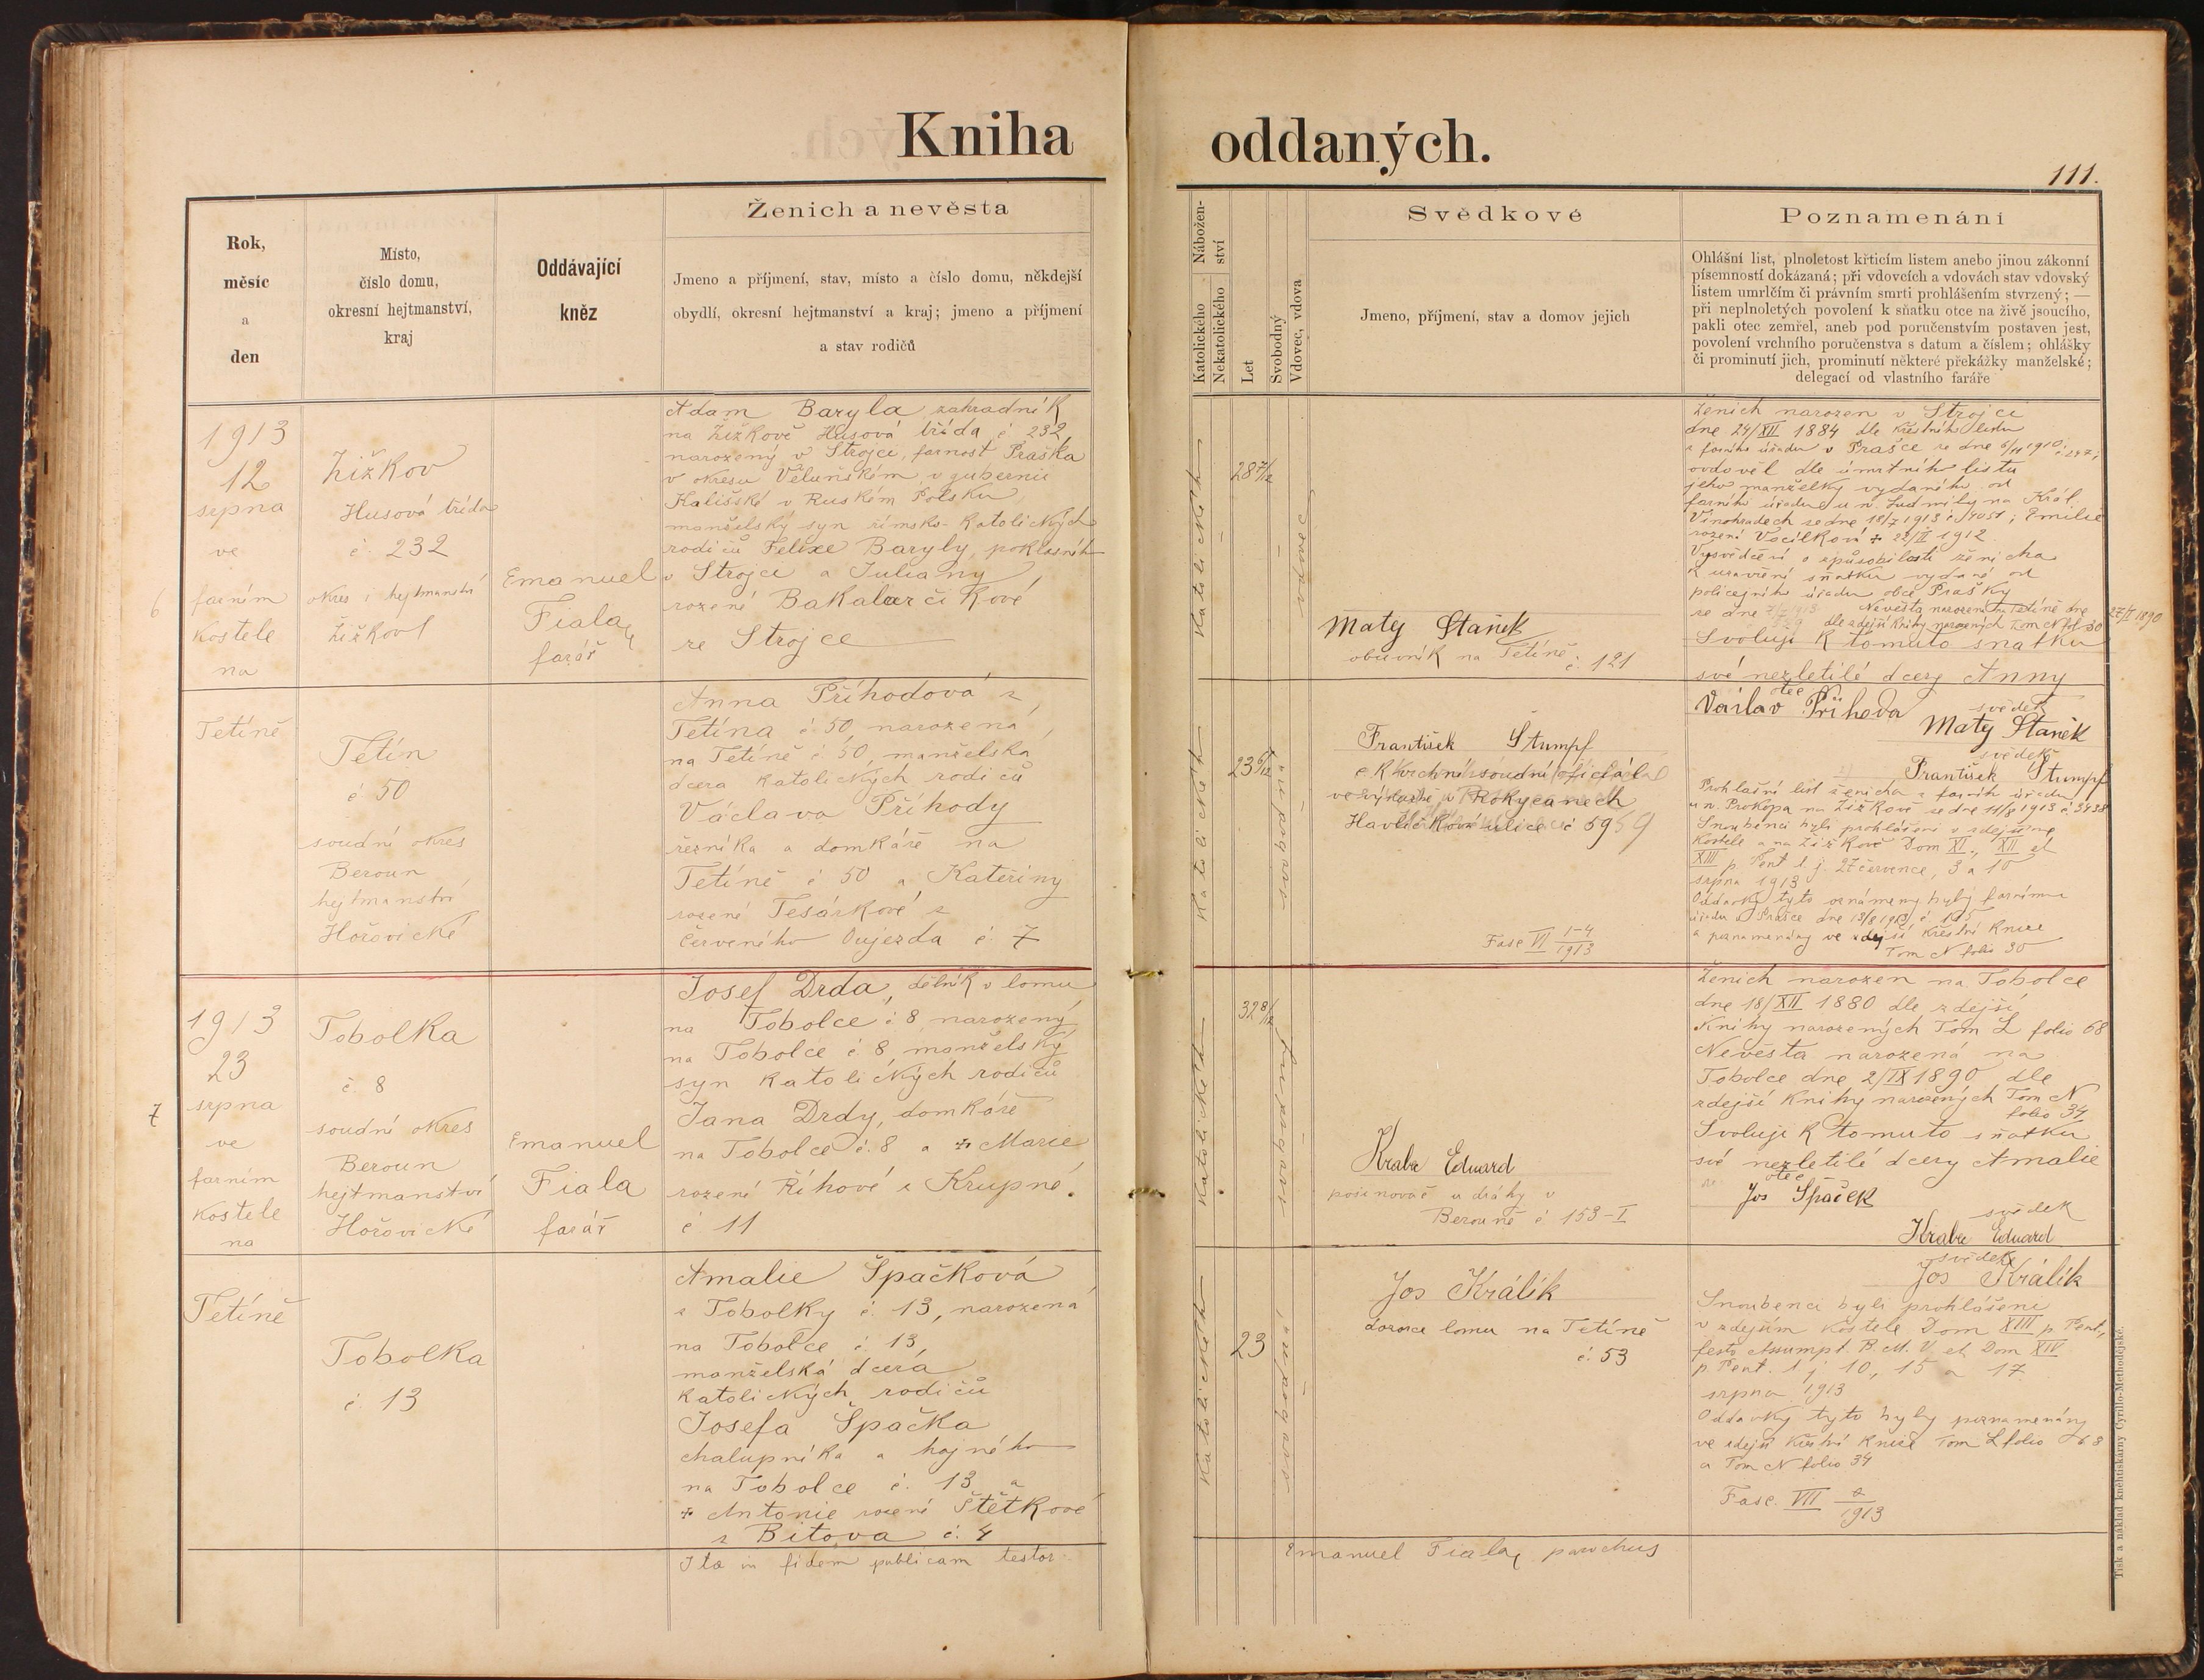 Kniha oddaných.
111.
Rok,
měsíc
a
den
Místo,
číslo domu,
okresní hejtmanství,
kraj
Oddávající
kněz
Ženich a nevěsta
Jmeno a příjmení, stav, místo a číslo domu, někdejší
obydlí, okresní hejtmanství a kraj; jmeno a příjmení
a stav rodičů
Nábožen-
ství
Katolického
Nekatolického
Let
Svobodný
Vdovec, vdova
Svědkové
Jmeno, příjmení, stav a domov jejich
Poznamenání
Ohlášní list, plnoletost křticím listem anebo jinou zákonní
písemností dokázaná; při vdovcích a vdovách stav vdovský
listem umrlčím či právním smrti prohlášením stvrzený; —
při neplnoletých povolení k sňatku otce na živě jsoucího,
pakli otec zemřel, aneb pod poručenstvím postaven jest,
povolení vrchního poručenstva s datum a číslem; ohlášky
či prominutí jich, prominutí některé překážky manželské;
delegací od vlastního faráře
6
1913
12
srpna
ve
farním
kostele
na
Tetíně
Žižkov
Husová třída
č. 232
okres i hejtmanství
Žižkov
Emanuel
Fiala,
farář
Adam Baryla, zahradník
na Žižkově Husová třída č 232,
narozený v Strojci, farnost Praška
v okresu Veluňském, v gubernii
Kališské v Ruském Polsku,
manželský syn římsko-katolických
rodičů Felixe Baryly,
v Strojci a Juliany,
rozené Bakalarčikové
ze Strojce
katolického
28 7/12
vdovec
Matej Staněk
obuvník na Tetíně č. 121
Ženich narozen v Strojci
dne 24/XII 1884 dle křestního listu
z farního úřadu v Prašce ze dne 6/11 1910 č 247;
ovdověl dle úmrtního listu
jeho manželky vydaného od
farního úřadu u sv. Ludmily na Král.
Vinohradech ze dne 18/7 1913 č 4051; Emilie
rozené Vocilkové + 22/II 1912
Vysvědčení o způsobilosti ženicha
k uzavření sňatku vydané od
policejního úřadu obce Prašky
ze dne
Nevěsta narozená na Tetíně dne 27/II 1890
dle zdejší knihy narozených Tom N fol 30
Svoluji k tomuto sňatku
své nezletilé dcery Anny
otec
Václav Příhoda
svědek
Matej Staněk
svědek
František Stumpf
Tetín
č 50
soudní okres
Beroun
hejtmanství
Hořovické
Anna Příhodová z
Tetína č 50, narozená
na Tetíně č 50, manželská
dcera katolických rodičů
Václava Příhody
řezníka a domkáře na
Tetíně č 50 a Kateřiny
rozené Tesárkové z
Červeného Oujezda č. 7
katolického
23 6/12
svobodná
František Stumpf
c k vrchní soudní oficiál
ve výslužbě v Rokycanech
Havlíčková ulice č 59
Fasc VI 1-4/1913
Prohlašní list ženicha z farního úřadu
u sv. Prokopa na Žižkově ze dne 11/8 1913 č 3438
Snoubenci byli prohlášeni v zdejším
kostele a na Žižkově Dom XI., XII et
XIII p. Pent t. j. 27 července, 3 a 10
srpna 1913
Oddavky tyto oznámeny byly farnímu
úřadu v Prašce dne 13/8 1913 č 105
a poznamenány ve zdejší křestní knize
Tom N folio 30
7
1913
23
srpna
ve
farním
kostele
na
Tetíně
Tobolka
č. 8
soudní okres
Beroun
hejtmanství
Hořovické
Emanuel
Fiala
farář
Josef Drda, dělník v lomu
na Tobolce č 8, narozený
na Tobolce č 8, manželský
syn katolických rodičů
Jana Drdy, domkáře
na Tobolce č. 8 a + Marie
rozené Říhové z Krupné.
č 11
katolického
32 8/12
svobodný
Kraba Eduard
posinovač u dráhy v
Berouně č 153-I
Ženich narozen na Tobolce
dne 18/XII 1880 dle zdejší
Knihy narozených Tom L folio 68
Nevěsta narozená na
Tobolce dne 2/IX 1890 dle
zdejší Knihy narozených Tom N
folio 34
Svoluji k tomuto sňatku
své nezletilé dcery Amalie
otec
Jos Špaček
svědek
Kraba Eduard
svědek
Jos Králík
Tobolka
č. 13
Amalie Špačková
z Tobolky č. 13, narozená
na Tobolce č. 13,
manželská dcera
katolických rodičů
Josefa Špačka
chalupníka a hajného
na Tobolce č. 13 a
+ Antonie rozené Štětkové
z Bitova č. 4
katolického
23
svobodná
Jos Králík
dozorce lomu na Tetíně
č. 53
Snoubenci byli prohlášeni
v zdejším kostele Dom XIII p Pent,
festo Assumpt. B. M. V. et Dom XIV
p. Pent. t. j 10, 15 a 17
srpna 1913
Oddavky tyto byly poznamenány
ve zdejší křestní knize Tom L folio 68
a Tom N folio 34
Fasc. VII 2/1913
Ita in fidem publicam testor.
Emanuel Fiala, parochus
Tisk a náklad knihtiskárny Cyrillo-Methodějské.